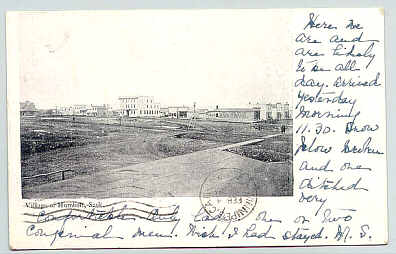 Here we
are and
are likely
to be all
day. Arrived
yesterday
Morning
11.30. Snow
plow broken
and one
ditched
very
Village of Humboldt, Sask.
WINNIPEG
FEB
Comfortable. Only Lady one or two
Congenial men. Wish I had stayed. M. S.